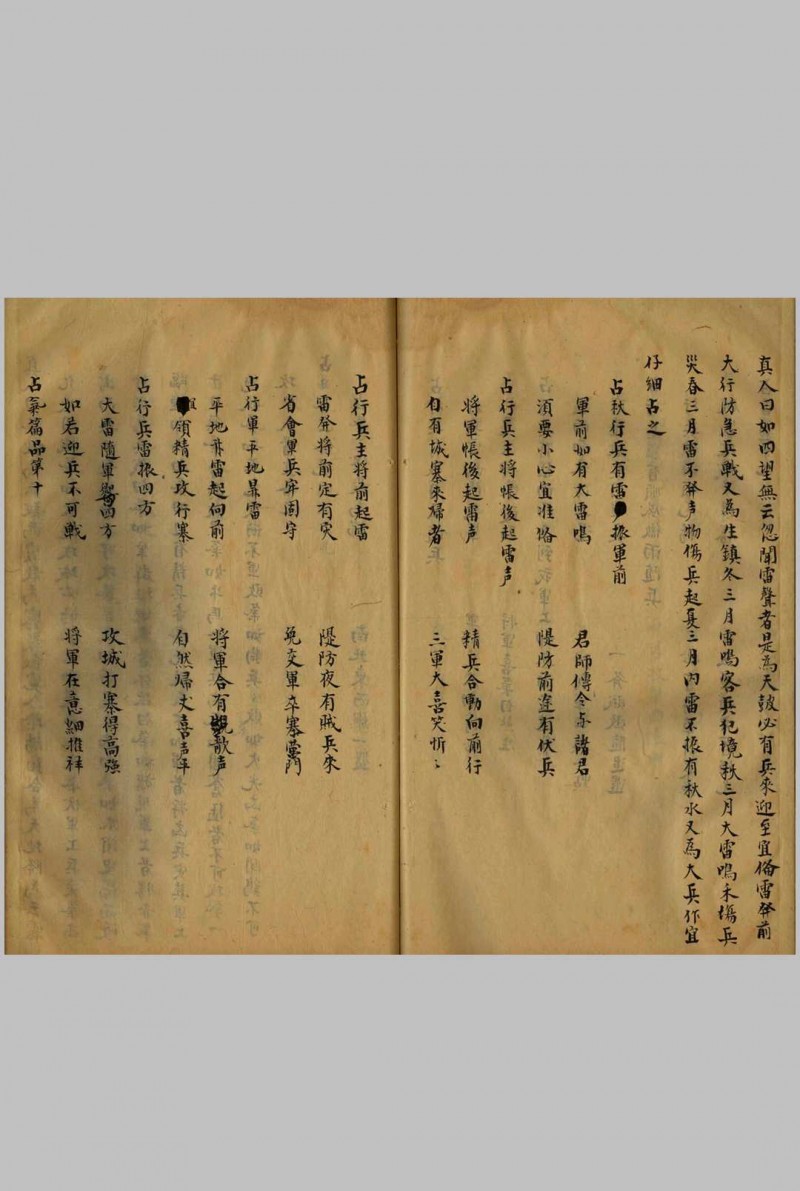 真人曰如四望無云忽聞雷聲者是為天皷必有兵來迎至宜偹雷發前
大行防急兵戰又為生鎮冬三月雷鳴客兵犯境秋三月大雷鳴禾傷兵
災春三月雷不發声物傷兵起夏三月內雷不振有秋水又為大兵作宜
仔細占之
占秋行兵有雷振軍前
軍前如有大雷鳴 君師傳令与諸君
須要小心宜准俻 隄防前途有伏兵
占行兵主将帳後起雷声
将軍帳後起雷声 精兵合動向前行
自有城寨來歸者 三軍大喜笑忻〻
占行兵主将前起雷
雷發将前定有灾 隄防夜有賊兵來
省會軍兵牢固守 免交軍卒寨門
占行軍平地暴雷
平地暴雷起向前 将軍合有散声
領精兵攻行寨 自然歸喜声年
占行兵雷振四方
大雷隨軍四方 攻城打寨得高強
如若迎兵不可戰 将軍在意細推祥
占氣篇品第十